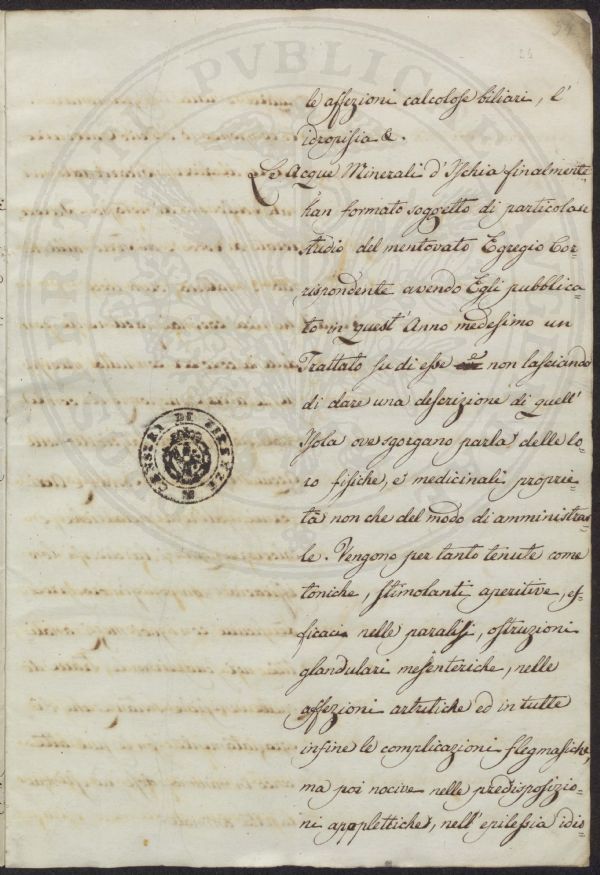 24
le affezioni calcolose biliari, l'
idropisia &.
Le Acque Minerali d'Ischia finalmente
han formato soggetto di particolare
studio del mentovato Egregio Cor=
rispondente avendo Egli pubblica=
to in quest'Anno medesimo un
Trattato su di esse non lasciando
di dare una descrizione di quell'
Isola ove sgorgano parla delle lo=
ro fisiche, e medicinali proprie=
tà non che del modo di amministrar=
le. Vengono per tanto tenute come
toniche, stimolanti aperitive, ef=
ficaci nelle paralisi, ostruzioni
glandulari mesenteriche, nelle
affezioni artritiche ed in tutte
infine le complicazioni flegmasiche,
ma poi nocive nelle predisposizio=
ni applettiche, nell'epilessia idio=